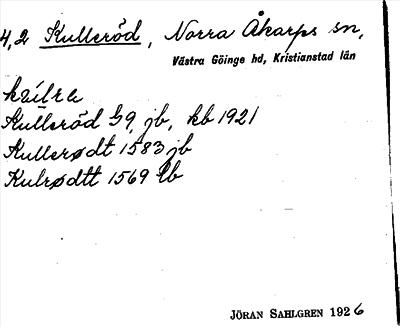 4,2 Kulleröd, Norra Åkarps sn,
Västra Göinge hd, Kristianstad län
Kulleröd 59, jb, kb 1921
Kullerødt 1583 jb
Kulrødtt 1569 lb
JÖRAN SAHLGREN 1926